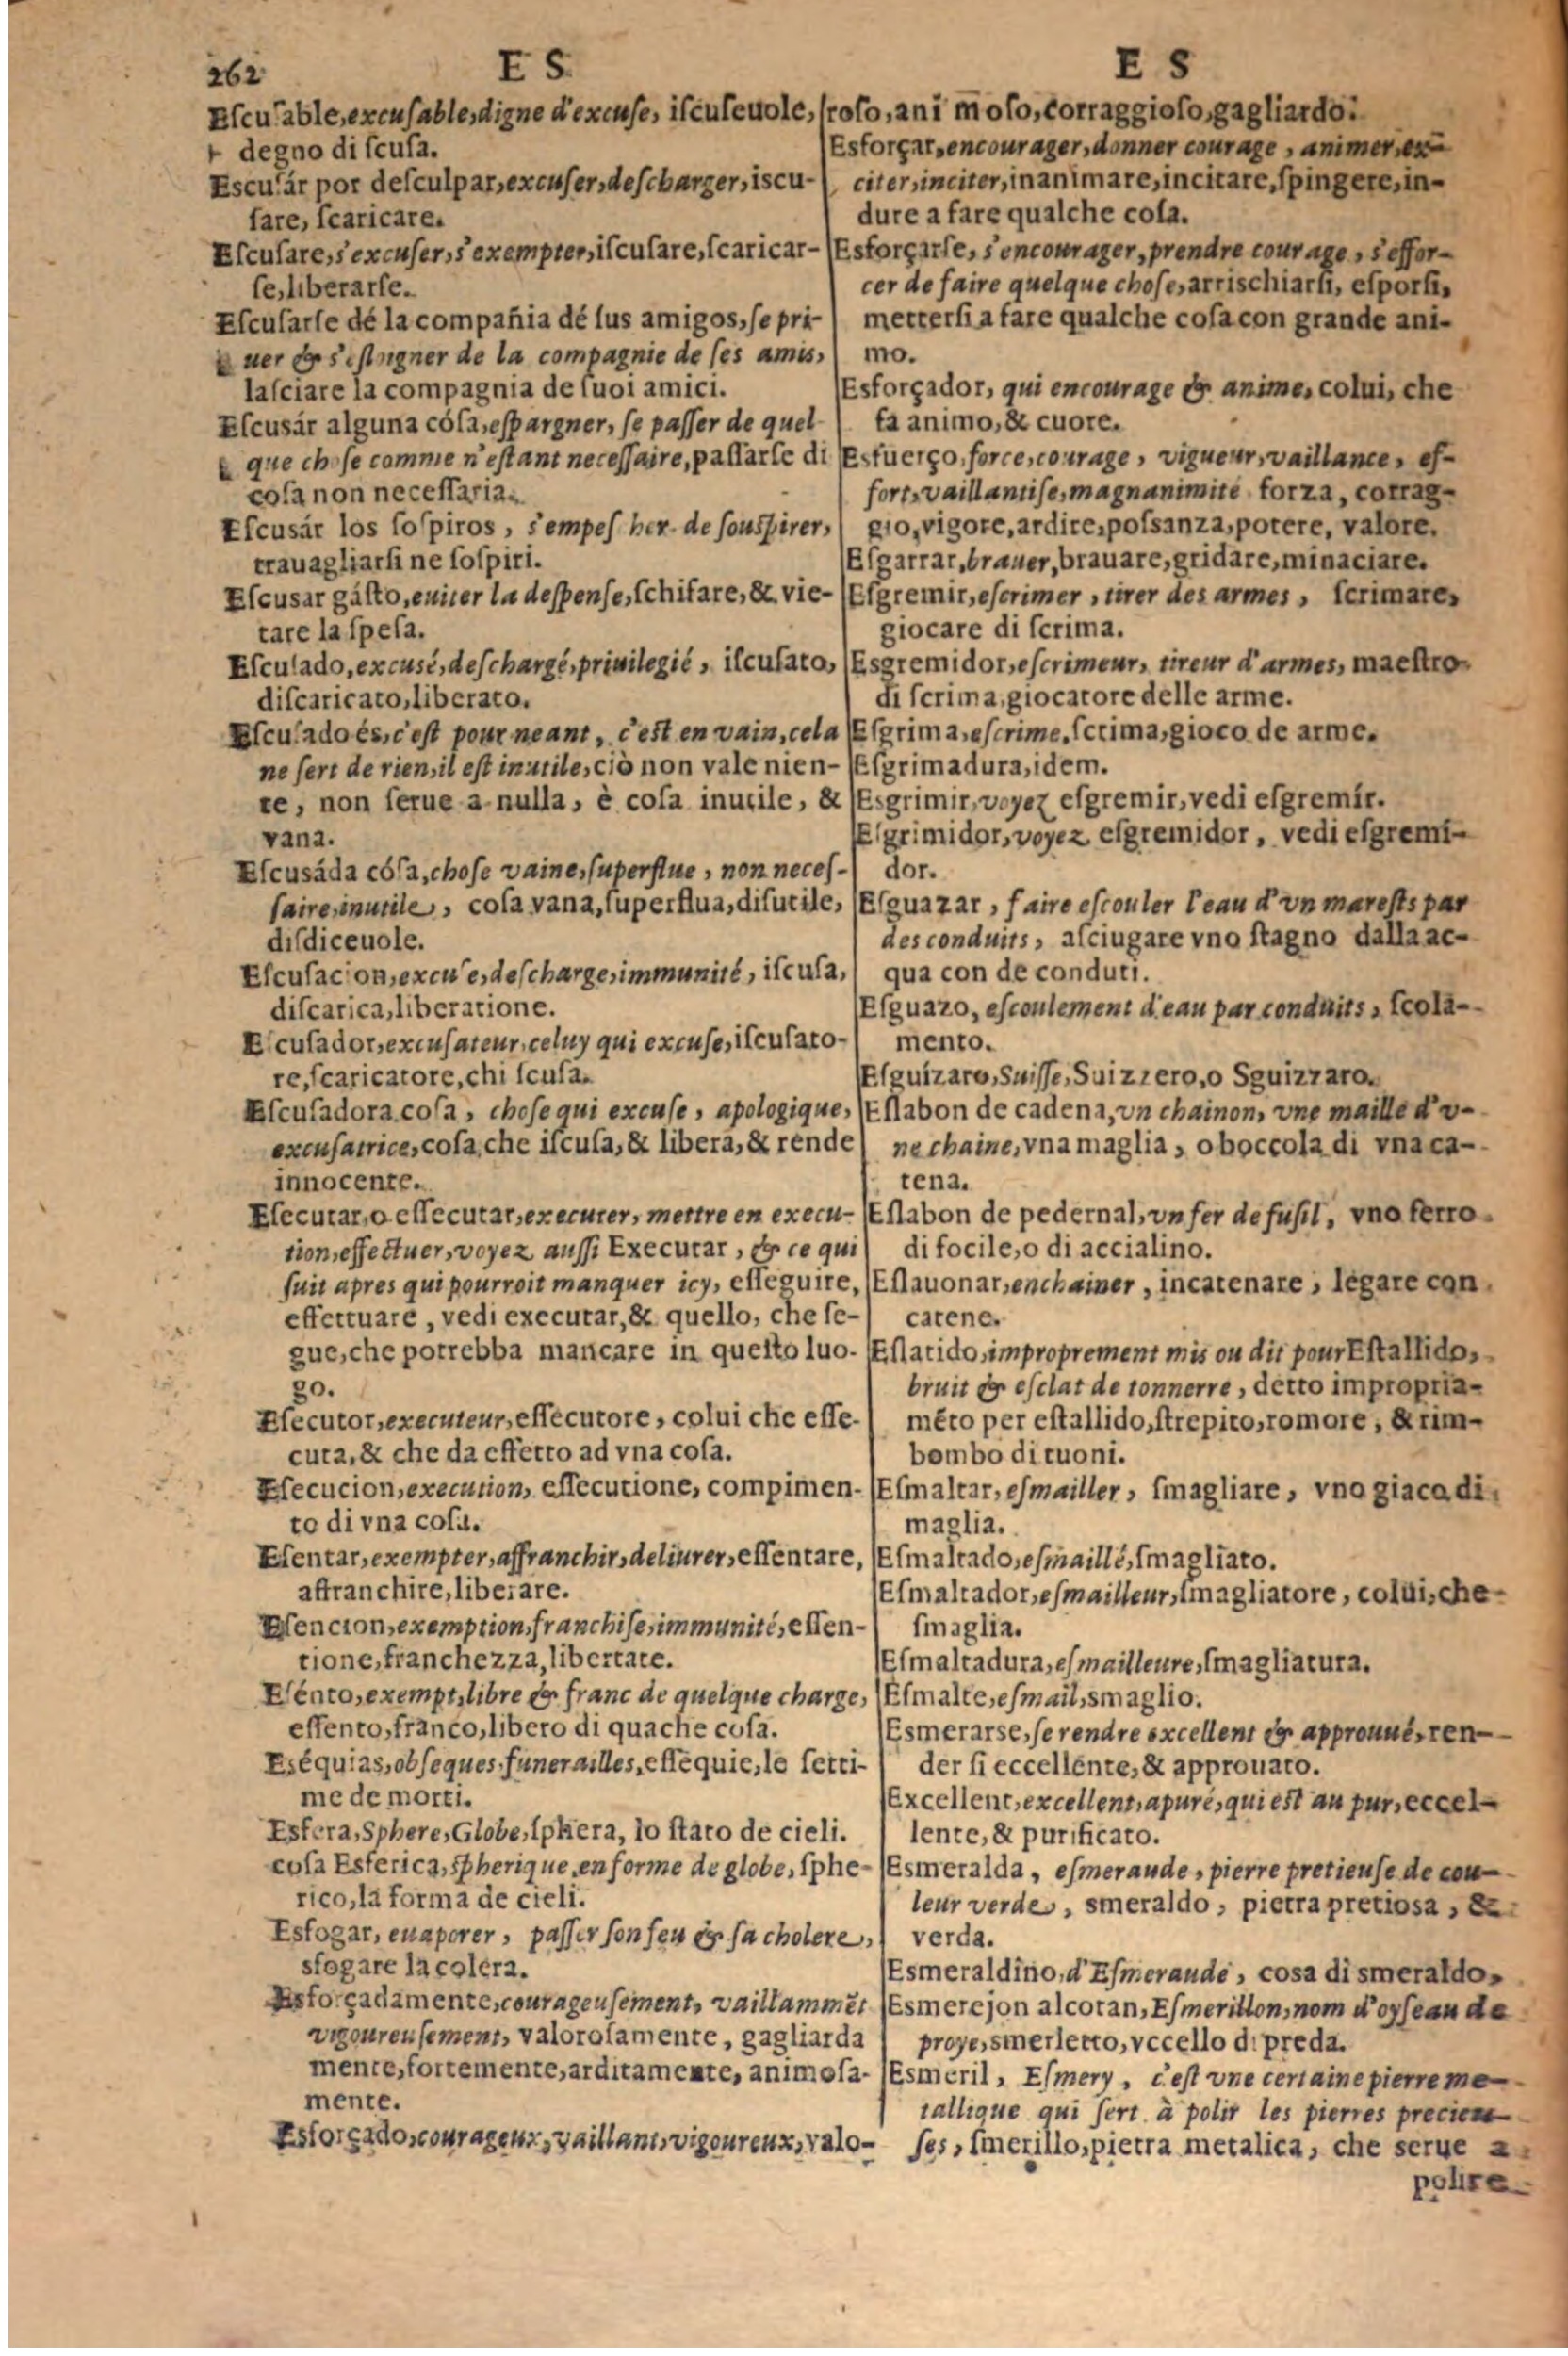 262
E S
E S
Eſcuſable, excuſable, digne d'excuſe, iſcuſeuole,
degno di ſcuſa.
Escuſár por deſculpar, excuſer, deſcharger, iscu-
ſare, ſcaricare.
Eſcuſare, s'excuſer, s'exempter, iſcuſare, ſcaricar-
ſe, liberarſe.
Eſcuſarſe dé la compañia dé ſus amigos, ſe pri-
uer & s'eſloigner de la compagnie de ſes amis,
laſciare la compagnia de ſuoi amici.
Eſcusár alguna cóſa, eſpargner, ſe paſſer de quel
que choſe comme n'eſtant neceſſaire, paſſarſe di
coſa non neceſſaria.
Eſcusár los ſoſpiros, s'empeſcher de ſouſpirer,
trauagliarſi ne ſoſpiri.
Eſcusar gáſto, euiter la deſpenſe, ſchifare, & vie-
tare la ſpeſa.
Eſcuſado, excusé, deſchargé, priuilegié, iſcuſato,
diſcaricato, liberato.
Eſcuſado és, c'eſt pour neant, c'eſt en vain, cela
ne ſert de rien, il eſt inutile, ciò non vale nien-
te, non ſerue a nulla, è coſa inutile, &
vana.
Eſcusáda cóſa, choſe vaine, ſuperflue, non neceſ-
ſaire, inutile, coſa vana, ſuperflua, diſutile,
diſdiceuole.
Eſcuſacion, excuſe, deſcharge, immunité, iſcuſa,
diſcarica, liberatione.
Eſcuſador, excuſateur, celuy qui excuſe, iſcuſato-
re, ſcaricatore, chi ſcuſa.
Eſcuſadora coſa, choſe qui excuſe, apologique,
excuſatrice, coſa che iſcuſa, & libera, & rende
innocente.
Eſecutar, o eſſecutar, executer, mettre en execu-
tion, effectuer, voyez auſſi Executar, & ce qui
ſuit apres qui pourroit manquer icy, eſſeguire,
effettuare, vedi executar, & quello, che ſe-
gue, che potrebba mancare in queſto luo-
go.
Eſecutor, executeur, eſſecutore, colui che eſſe-
cuta, & che da effetto ad vna coſa.
Eſecucion, execution, eſſecutione, compimen-
to di vna coſa.
Eſentar, exempter, affranchir, deliurer, eſſentare,
affranchire, liberare.
Eſencion, exemption, franchiſe, immunité, eſſen-
tione, franchezza, libertate.
Eſénto, exempt, libre & franc de quelque charge,
eſſento, franco, libero di quache coſa.
Eséquias, obſeques, funerailles, eſſequie, le ſetti-
me de morti.
Esfera, Sphere, Globe, ſphera, lo ſtato de cieli.
coſa Esferica, ſpherique, en forme de globe, sphe-
rico, la forma de cieli.
Esfogar, euaporer, paſſer ſon feu & ſa cholere,
sfogare la colera.
Esforçadamente, courageuſement, vaillammēt
vigoureuſement, valoroſamente, gagliarda
mente, fortemente, arditamente, animoſa-
mente.
Esforçado, courageux, vaillant, vigoureux, valo-
roſo, animoſo, corraggioſo, gagliardo.
Esforçar, encourager, donner courage, animer, ex-
citer, inciter, inanimare, incitare, ſpingere, in-
dure a fare qualche coſa.
Esforçarſe, s'encourager, prendre courage, s'effor-
cer de faire quelque choſe, arriſchiarſi, eſporſi,
metterſi a fare qualche coſa con grande ani-
mo.
Esforçador, qui encourage & anime, colui, che
fa animo, & cuore.
Esfuerço, force, courage, vigueur, vaillance, ef-
fort, vaillantiſe, magnanimité forza, corrag-
gio, vigore, ardire, poſsanza, potere, valore.
Eſgarrar, brauer, brauare, gridare, minaciare.
Eſgremir, eſcrimer, tirer des armes, ſcrimare,
giocare di ſcrima.
Esgremidor, eſcrimeur, tireur d'armes, maeſtro
di ſcrima, giocatore delle arme.
Eſgrima, eſcrime, ſcrima, gioco de arme.
Eſgrimadura, idem.
Esgrimir, voyez eſgremir, vedi eſgremír.
Eſgrimidor, voyez eſgremidor, vedi eſgremi-
dor.
Eſguazar, faire eſcouler l'eau d'vn mareſts par
des conduits, aſciugare vno ſtagno dalla ac-
qua con de conduti.
Eſguazo, eſcoulement d'eau par conduits, ſcola-
mento.
Eſguízaro, Suiſſe, Suizzero, o Sguizzaro.
Eſlabon de cadena, vn chainon, vne maille d'v-
ne chaine, vna maglia, o boccola di vna ca-
tena.
Eſlabon de pedernal, vn fer de fuſil, vno ferro
di focile, o di accialino.
Eſlauonar, enchainer, incatenare, legare con
catene.
Eſlatido, improprement mis ou dit pour Eſtallido,
bruit & eſclat de tonnerre, detto impropria-
mēto per eſtallido, ſtrepito, romore, & rim-
bombo di tuoni.
Eſmaltar, eſmailler, ſmagliare, vno giaco di
maglia.
Eſmaltado, eſmaillé, ſmagliato.
Eſmaltador, eſmailleur, ſmagliatore, colui, che
ſmaglia.
Eſmaltadura, eſmailleure, ſmagliatura.
Eſmalte, eſmail, smaglio.
Esmerarse, ſe rendre excellent & approuué, ren-
der ſi eccellente, & approuato.
Excellent, excellent, apuré, qui eſt au pur, eccel-
lente, & purificato.
Esmeralda, eſmeraude, pierre pretieuſe de cou-
leur verde, smeraldo, pietra pretiosa, &
verda.
Esmeraldino, d'Eſmeraude, cosa di smeraldo.
Esmerejon alcotan, Eſmerillon, nom d'oyſeau de
proye, smerletto, vccello di preda.
Esmeril, Eſmery, c'eſt vne certaine pierre me-
tallique qui ſert à polir les pierres precieu-
ſes, ſmerillo, pietra metalica, che serue a
polire